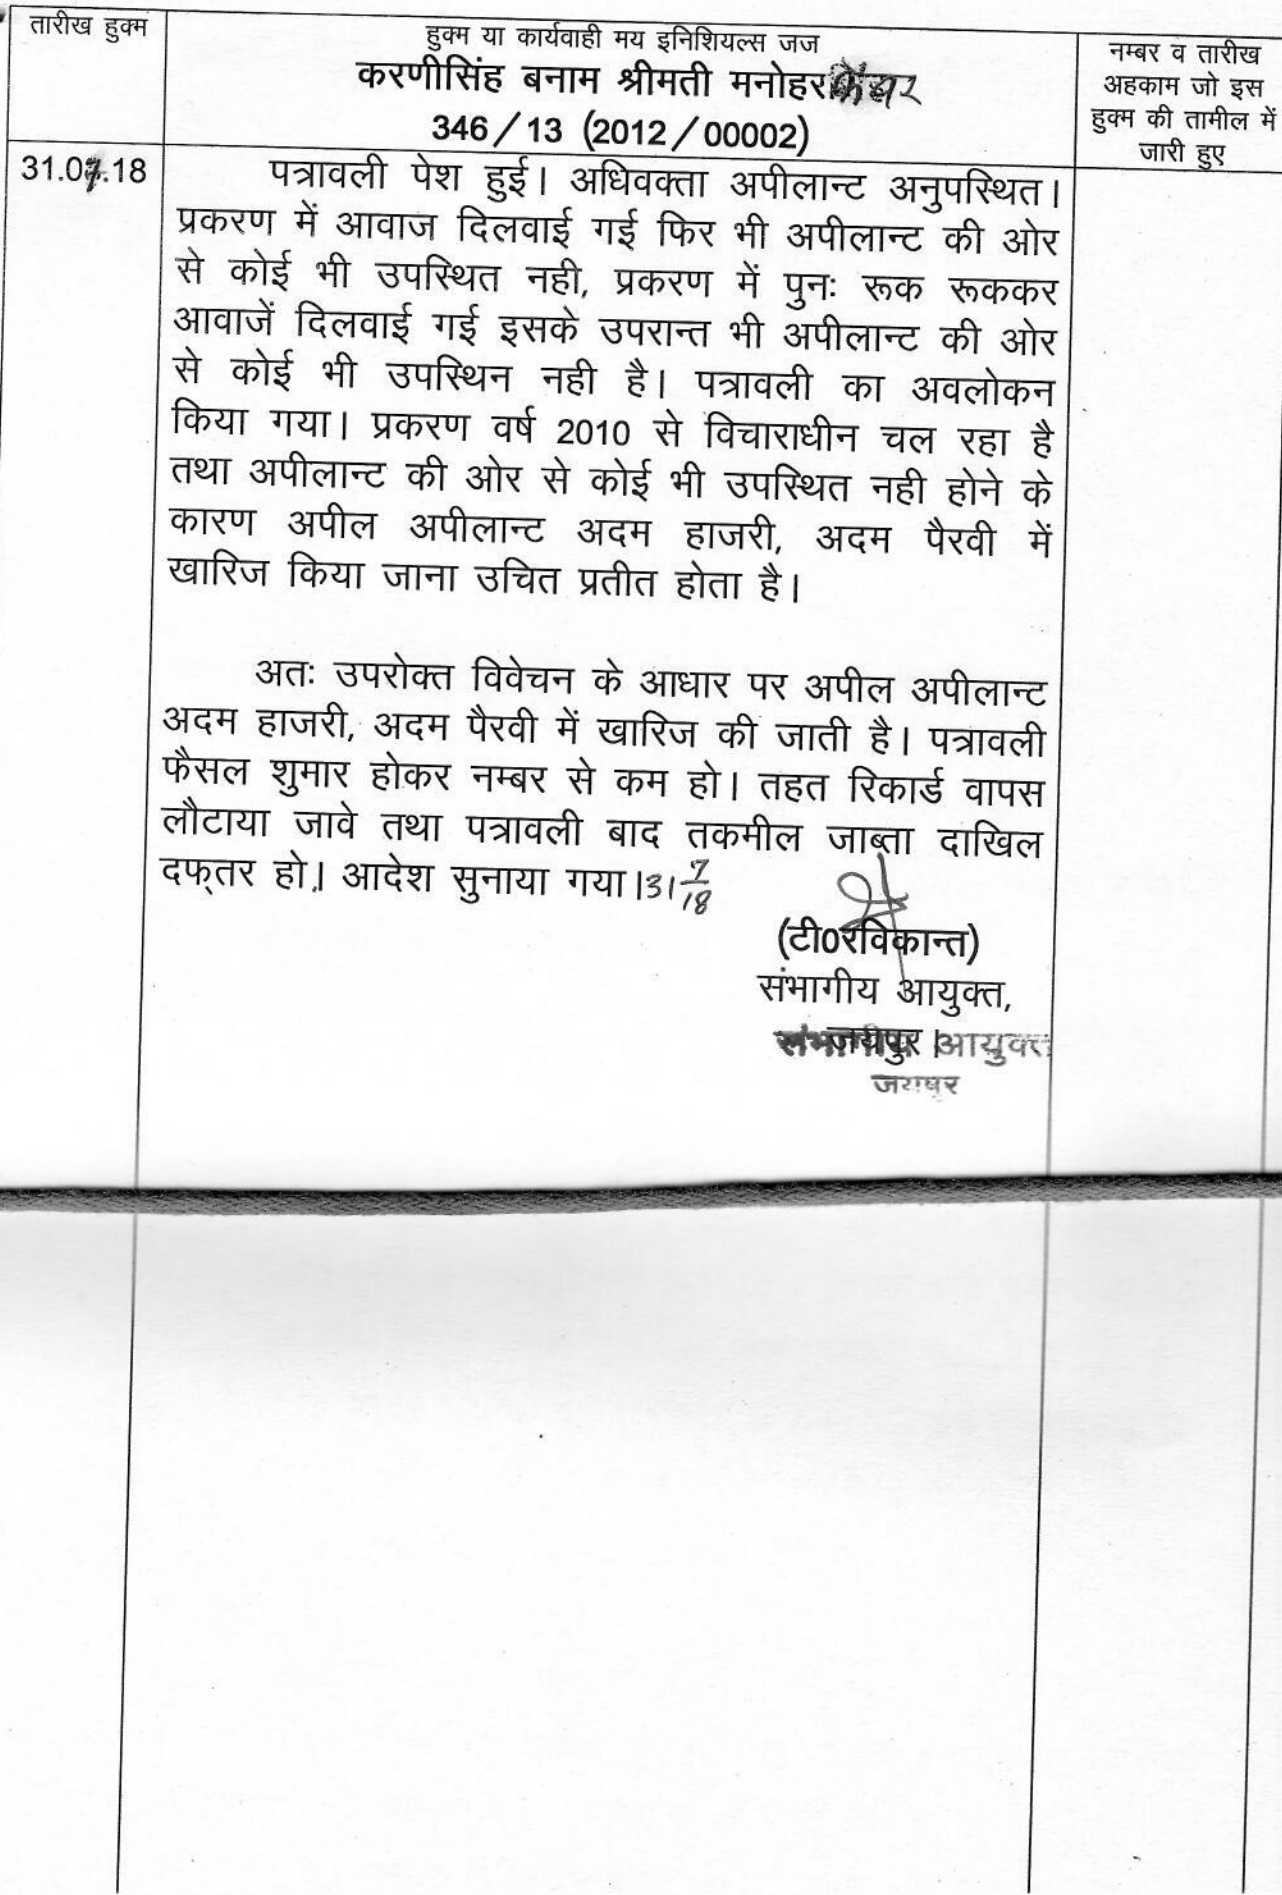 तारीख हुक्म
हुक्म या कार्यवाही मय इनिशियल्स जज
करणीसिंह बनाम श्रीमती मनोहर
346/13 (2012/00002)
नम्बर व तारीख
अहकाम जो इस
हुक्म की तामील में
जारी हुए
31.07.18
पत्रावली पेश हुई। अधिवक्ता अपीलान्ट अनुपस्थित।
प्रकरण में आवाज दिलवाई गई फिर भी अपीलान्ट की ओर
से कोई भी उपस्थित नही, प्रकरण में पुनः रूक रूककर
आवाजें दिलवाई गई इसके उपरान्त भी अपीलान्ट की ओर
से कोई भी उपस्थिन नही है। पत्रावली का अवलोकन
किया गया। प्रकरण वर्ष 2010 से विचाराधीन चल रहा है
तथा अपीलान्ट की ओर से कोई भी उपस्थित नही होने के
कारण अपील अपीलान्ट अदम हाजरी, अदम पैरवी में
खारिज किया जाना उचित प्रतीत होता है।
अतः उपरोक्त विवेचन के आधार पर अपील अपीलान्ट
अदम हाजरी, अदम पैरवी में खारिज की जाती है। पत्रावली
फैसल शुमार होकर नम्बर से कम हो। तहत रिकार्ड वापस
लौटाया जावे तथा पत्रावली बाद तकमील जाब्ता दाखिल
दफ्तर हो। आदेश सुनाया गया। 31 7/18
(टी0रविकान्त)
संभागीय आयुक्त,
जयपुर।
संभागीय आयुक्त
जयपुर